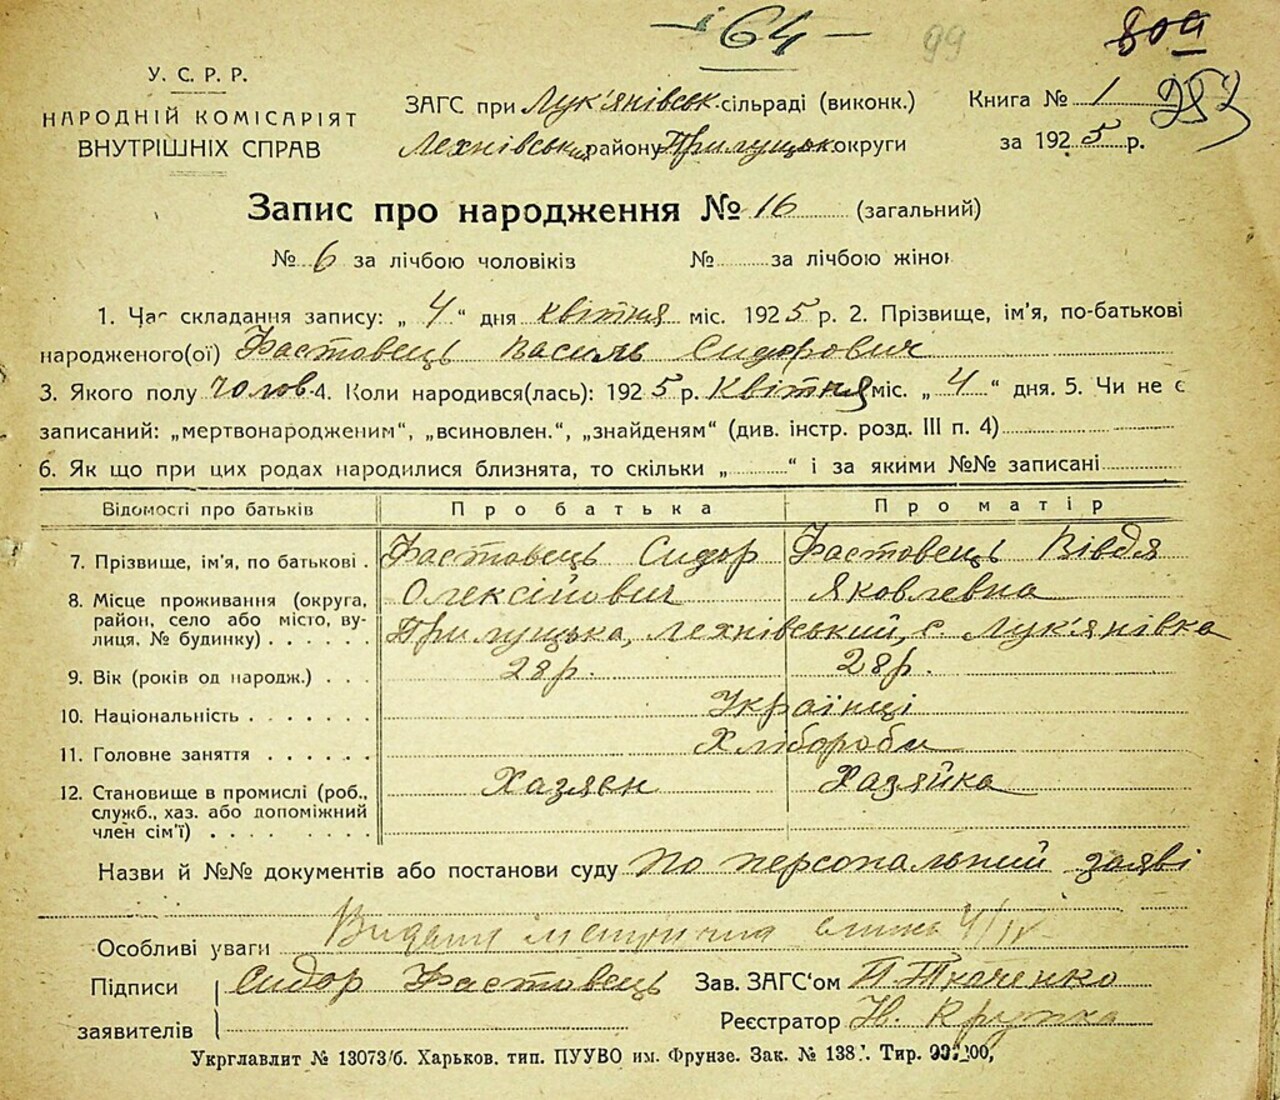 64 99 809
У. С. Р. Р.
НАРОДНІЙ КОМІСАРІЯТ
ВНУТРІШНІХ СПРАВ
ЗАГС при Лук'янівськ. сільраді (виконк.)
Лехнівськ району Прилуцьк. округи
Книга № 1 253
за 1925 р.
Запис про народження № 16 (загальний)
№ 6 за лічбою чоловіків № за лічбою жінок
1. Час складання запису: „ 4 “ дня квітня міс. 1925 р. 2. Прізвище, ім'я, по-батькові
народженого(ої) Фастовець Василь Сидорович
3. Якого полу чолов. 4. Коли народився(лась): 1925 р. Квітня міс. „ 4 “ дня. 5. Чи не є
записаний: „мертвонародженим“, „всиновлен.“, „знайденям“ (див. інстр. розд. III п. 4)
6. Як що при цих родах народилися близнята, то скільки „ “ і за якими №№ записані
Відомості про батьків Про батька Про матір
7. Прізвище, ім'я, по батькові . Фастовець Сидор Фастовець Вівдя
Олексійович Яковлевна
8. Місце проживання (округа,
район, село або місто, ву-
лиця, № будинку) . . . . . Прилуцька, Лехнівський, с. Лук'янівка
9. Вік (років од народж.) . . . 28 р. 28 р.
10. Національність . . . . . . . Українці
11. Головне заняття . . . . . . Хлібороби
12. Становище в промислі (роб.,
служб., хаз. або допоміжний
член сім'ї) . . . . . . . . Хазяєн Хазяйка
Назви й №№ документів або постанови суду по персональний заяві
Особливі уваги Видана 4/IV
Підписи Сидор Фастовець Зав. ЗАГС‘ом П. Ткаченко
заявителів Реєстратор Н. Крупка
Укрглавлит № 13073/б. Харьков, тип. ПУУВО им. Фрунзе. Зак. № 138 Тир.